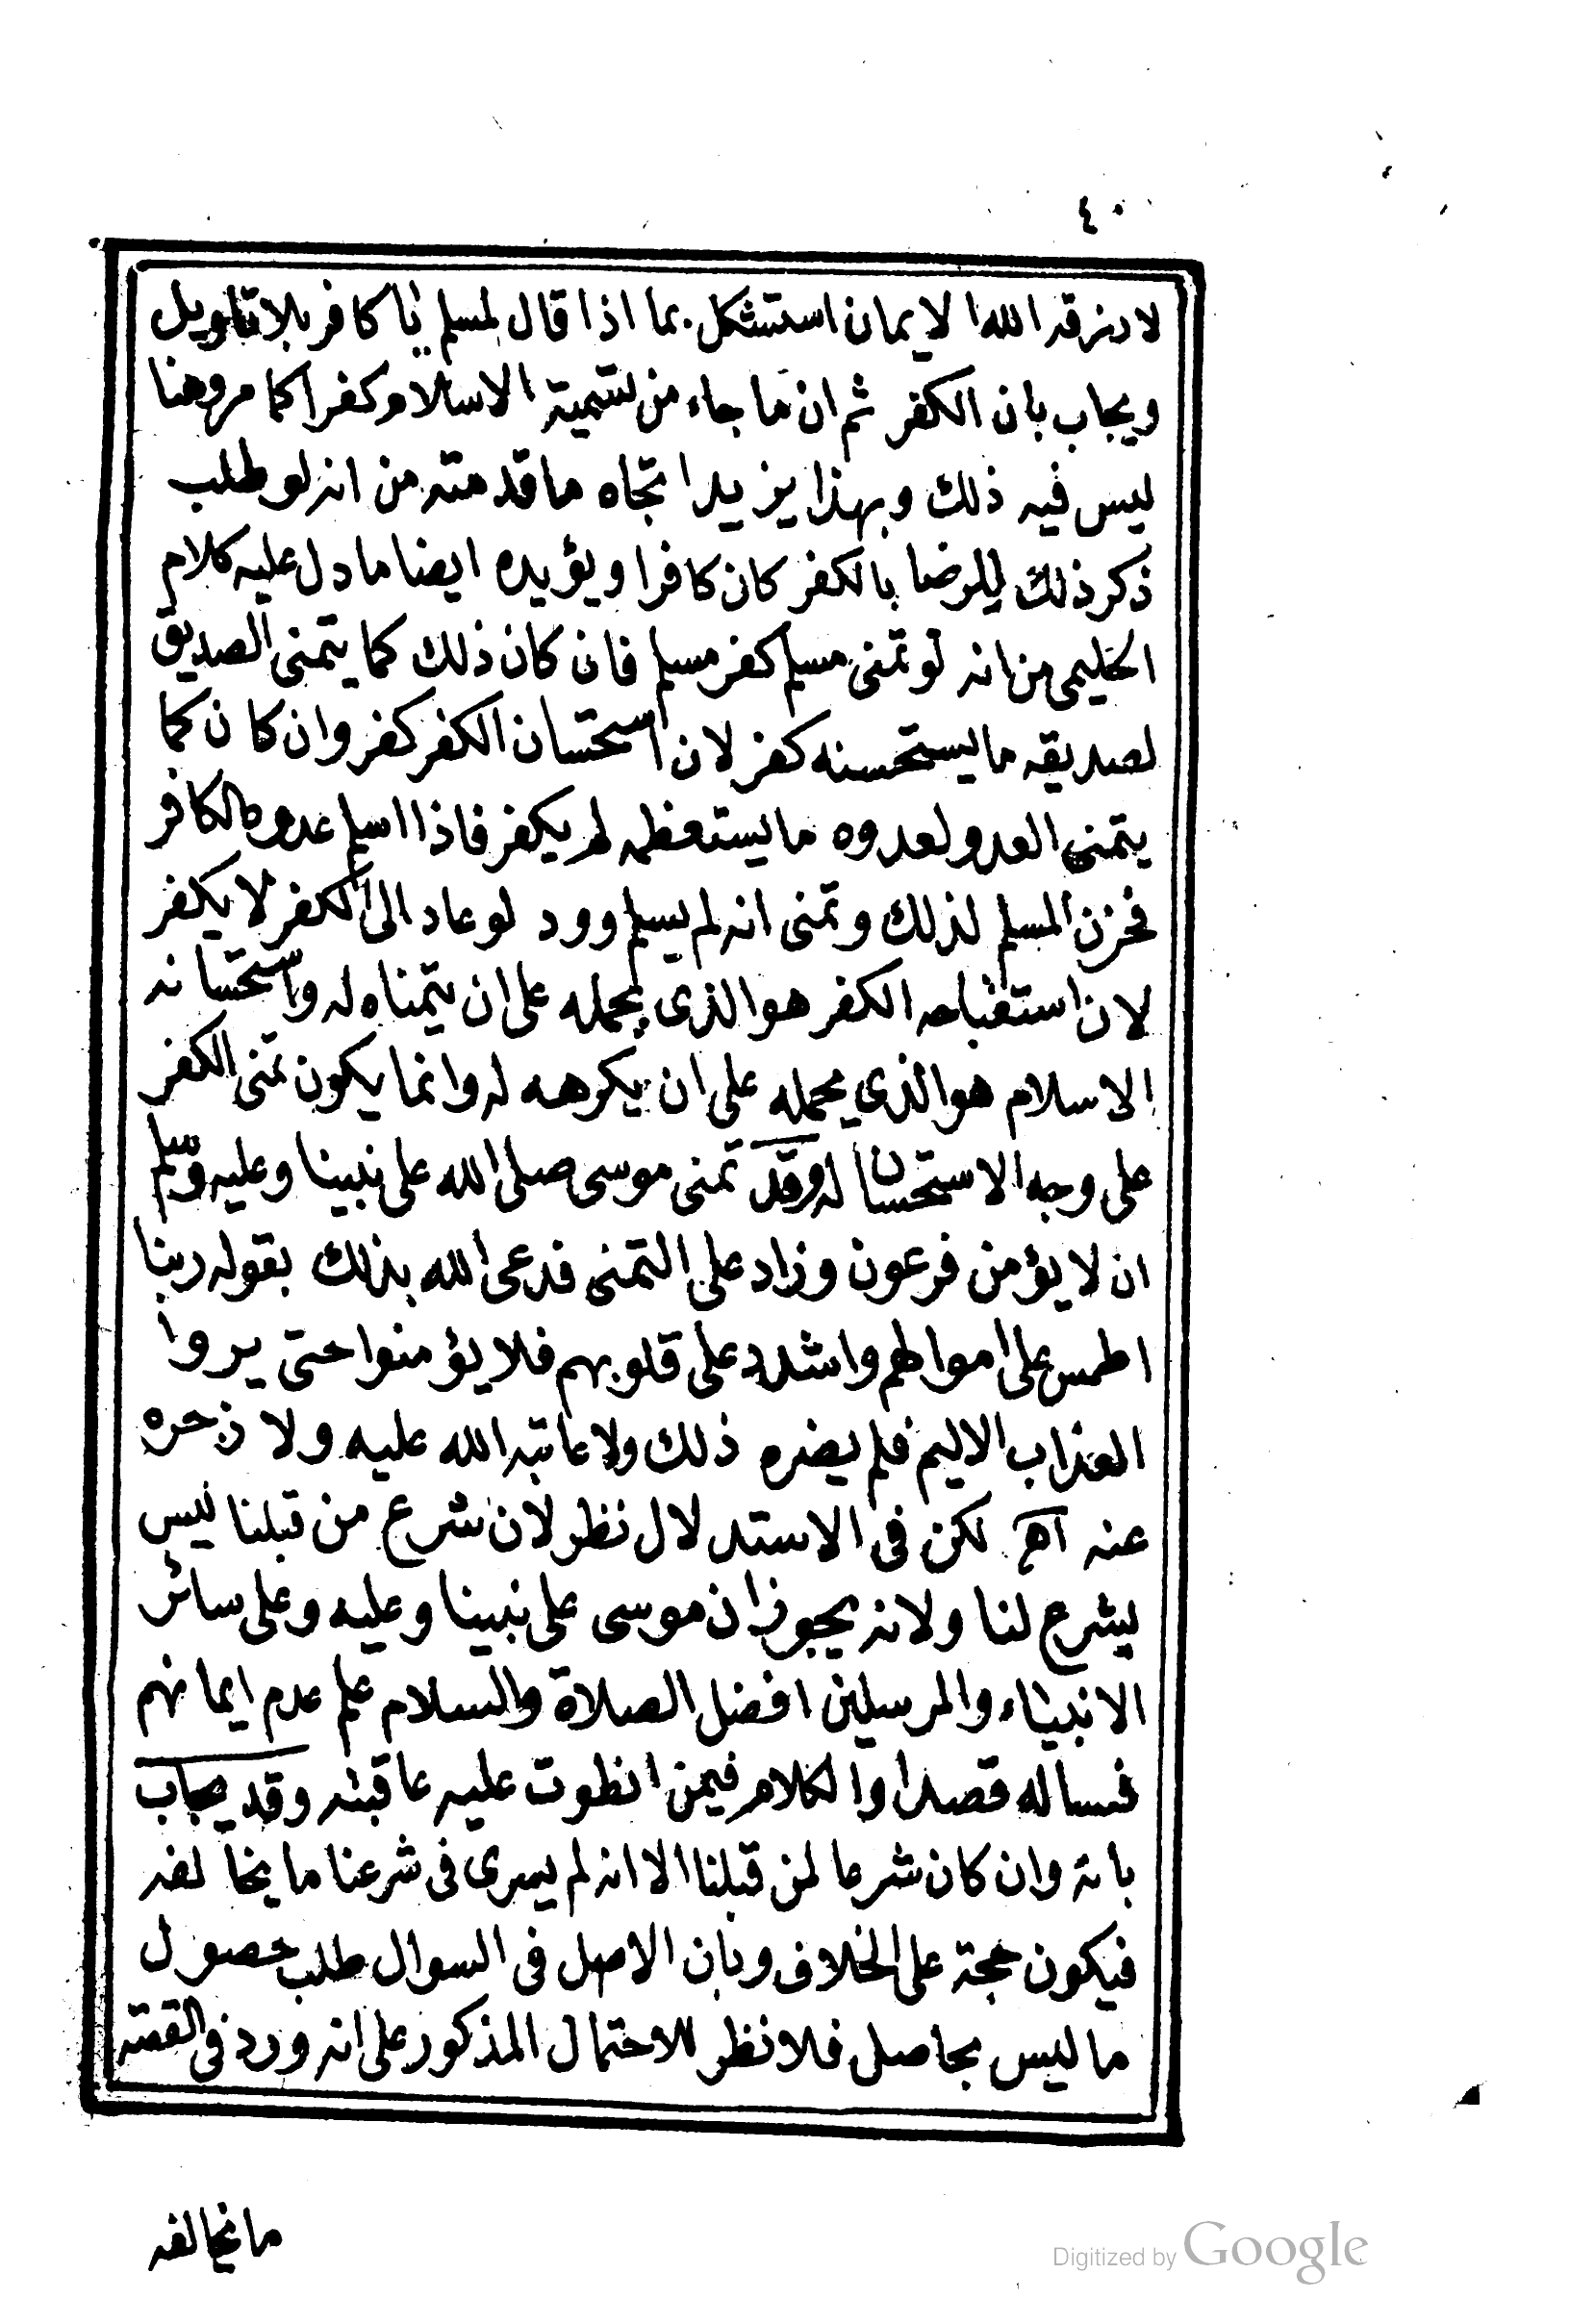 ٤٠
لا رزقه الله الايمان استشكل بما اذا قال لمسلم يا كافر بلا تاويل
ويجاب بان الكفر ثم ان ما جاء من تسمية الاسلام كفرا كما مر وهنا
ليس فيه ذلك وبهذا يزيد اتجاه ما قدمته من انه لو طلب
ذكر ذلك للرضا بالكفر كان كافرا ويؤيده ايضا ما دل عليه كلام
الحليمى من انه لو تمنى مسلم كفر مسلم فان كان ذلك كما يتمنى الصديق
لصديقه ما يستحسنه كفر لان استحسان الكفر كفر وان كان كما
يتمنى العدو لعدوه ما يستعظمه لم يكفر فاذا اسلم عدوه الكافر
فحزن المسلم لذلك وتمنى انه لم يسلم وود لو عاد الى الكفر لا يكفر
لان استقباحه الكفر هو الذى يحمله على ان يتمناه له واستحسانه
الاسلام هو الذي يحمله على ان يكرهه له وانما يكون تمنى الكفر
على وجه الاستحسان له وقد تمنى موسى صلى الله على نبينا وعليه وسلم
ان لا يؤمن فرعون وزاد على التمنى فدعى الله بذلك بقوله ربنا
اطمس على اموالهم واشدد على قلوبهم فلا يؤمنوا حتى يروا
العذاب الاليم فلم يضره ذلك ولا عاتبه الله عليه ولا زجره
عنه اه لكن فى الاستدلال نظر لان شرع من قبلنا ليس
بشرع لنا ولانه يجوز ان موسى على نبينا وعليه وعلى سائر
الانبياء والمرسلين افضل الصلاة والسلام علم عدم ايمانهم
فساله قصدا والكلام فيمن انطوت عليه عاقبته وقد يجاب
بانه وان كان شرعا لمن قبلنا الا انه لم يسرى فى شرعنا ما يخالفه
فيكون حجة على الخلاف وبان الاصل فى السوال طلب حصول
ما ليس بحاصل فلا نظر للاحتمال المذكور على انه ورد فى القصة
ما يخالفه
Digitized by Google